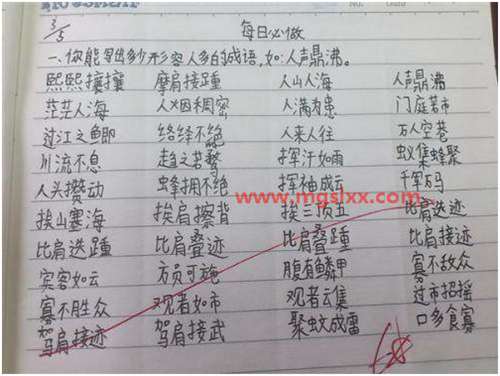 3/5
每日必做
一、你能写出多少形容人多的成语,如:人声鼎沸。
熙熙攘攘 摩肩接踵 人山人海 人声鼎沸
茫茫人海 人烟稠密 人满为患 门庭若市
过江之鲫 络绎不绝 人来人往 万人空巷
川流不息 趋之若鹜 挥汗如雨 蚁集蜂聚
人头攒动 蜂拥不绝 挥袖成云 千军万马
www.mgslxx.com
挨山塞海 挨肩擦背 挨三顶五 比肩迭迹
比肩迭踵 比肩叠迹 比肩叠踵 比肩接迹
宾客如云 方员可施 腹有鳞甲 寡不敌众
寡不胜众 观者如市 观者云集 过市招摇
驾肩接迹 驾肩接武 聚蚊成雷 口多食寡